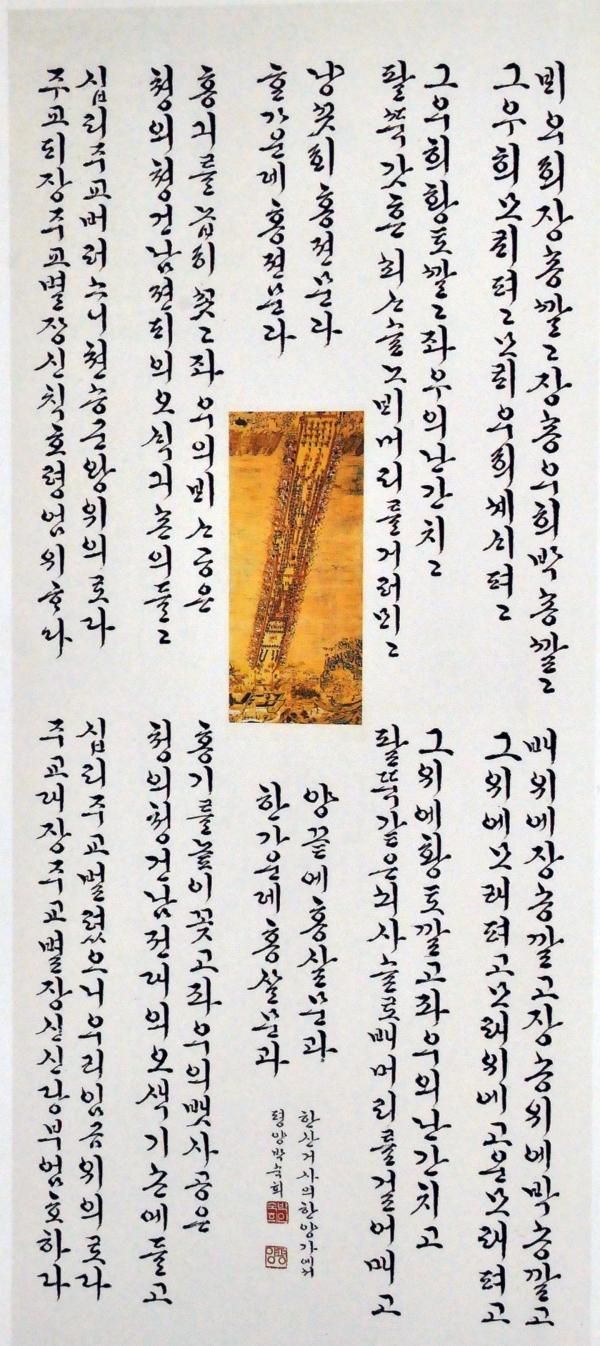 비우희장송깔고장송우희박송깔고
그우희모릐펴고모릐우희세싀펴고
그우희황토깔고좌우의난간치고
팔ᄯᅮᆨ갓흔쇠스슬노비머리를거러믜고
냥ᄭᅳᆺ희홍젼문과
흔가온데홍젼문과
홍긔를놉히ᄭᅩᆺ고좌우의비스공은
청의청건남젼듸의오식긔손의들고
십리주교버러스니천승군왕위의로다
주교듸장주교별장신칙호령엄위흐다
배위에장송깔고장송위에박송깔고
그위에모래펴고모래위에고운모래펴고
그위에황토깔고좌우의난간치고
팔뚝같은쇠사슬로배머리를걸어매고
양끝에홍살문과
한가운데홍살문과
홍기를높이꽂고좌우의뱃사공은
청의청건남전대의오색기손에들고
십리주교벌렸으니우리임금위의로다
주교대장주교별장실신당부엄호하다
한산거사의한양가에서
평양박숙희